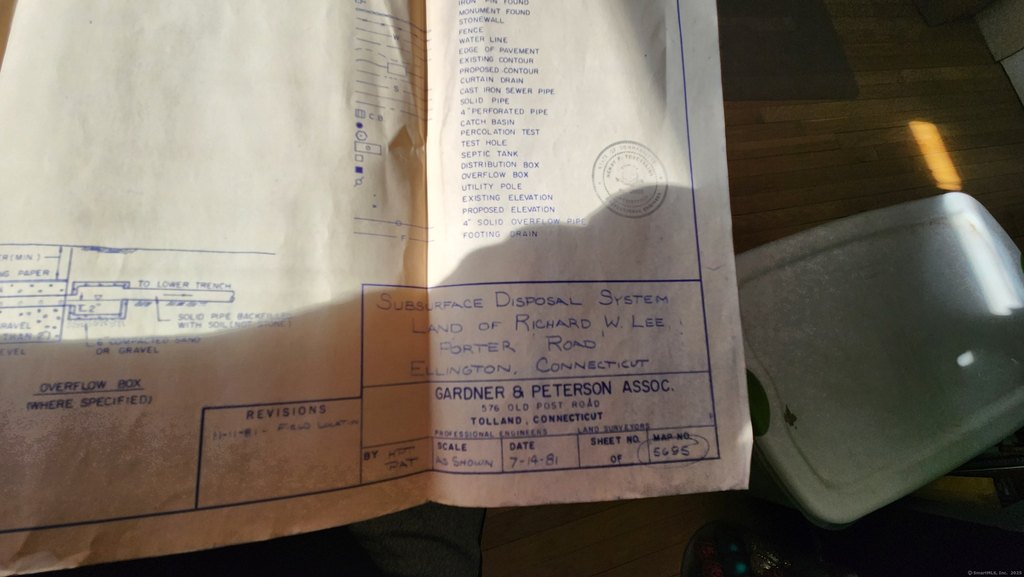 IRON PIN FOUND
MONUMENT FOUND
STONEWALL
FENCE
WATER LINE
EDGE OF PAVEMENT
EXISTING CONTOUR
PROPOSED CONTOUR
CURTAIN DRAIN
CAST IRON SEWER PIPE
SOLID PIPE
4" PERFORATED PIPE
CATCH BASIN
PERCOLATION TEST
TEST HOLE
SEPTIC TANK
DISTRIBUTION BOX
OVERFLOW BOX
UTILITY POLE
EXISTING ELEVATION
PROPOSED ELEVATION
4" SOLID OVERFLOW PIPE
FOOTING DRAIN
W
S
CB
F
R (MIN.)
NG PAPER
TO LOWER TRENCH
2"
SOLID PIPE BACKFILLED
WITH SOIL (NOT STONE)
RAVEL
THAN
EVEL
6" COMPACTED SAND
OR GRAVEL
OVERFLOW BOX
(WHERE SPECIFIED)
REVISIONS
11-11-81 - FIELD LOCATION
SUBSURFACE DISPOSAL SYSTEM
LAND OF RICHARD W. LEE
PORTER ROAD
ELLINGTON, CONNECTICUT
GARDNER & PETERSON ASSOC.
576 OLD POST ROAD
TOLLAND, CONNECTICUT
PROFESSIONAL ENGINEERS LAND SURVEYORS
BY
PAT
SCALE
AS SHOWN
DATE
7-14-81
SHEET NO.
OF
MAP NO.
5695
© SmartMLS, Inc. 2025